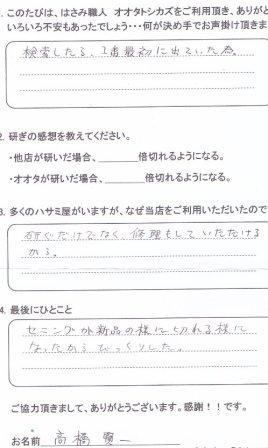 1. このたびは、はさみ職人 オオタトシカズをご利用頂き、ありがと
いろいろ不安もあったでしょう・・・何が決め手でお声掛け頂きま
検索したら、1番最初に出ていた為。
2. 研ぎの感想を教えてください。
・他店が研いだ場合、______倍切れるようになる。
・オオタが研いだ場合、______倍切れるようになる。
3. 多くのハサミ屋がいますが、なぜ当店をご利用いただいたので
研ぐだけでなく、修理もしていただける
から。
4. 最後にひとこと
セニングが新品の様に切れる様に
なったからびっくりした。
ご協力頂きまして、ありがとうございます。感謝！！です。
お名前 高橋 賢一